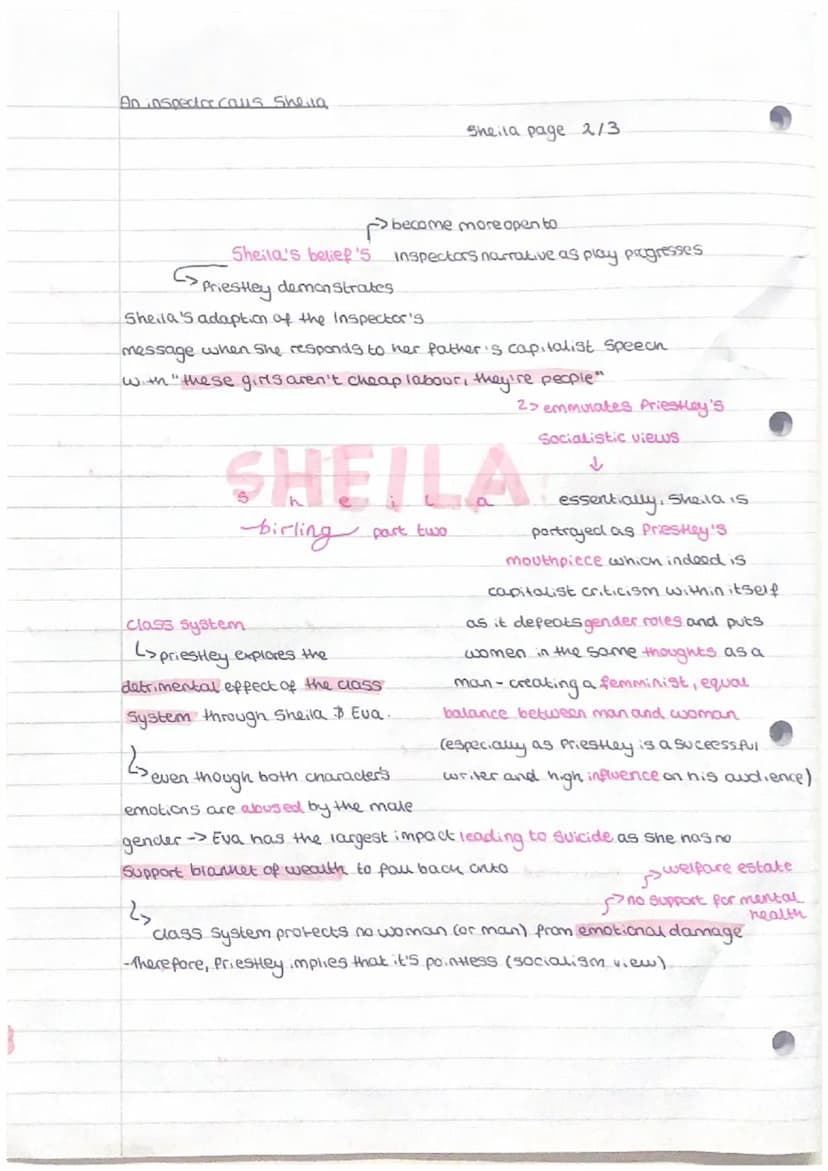 An inspector calls Sheila
Sheila page 2/3
↱> become more open to
Sheila's belief's inspectors narrative as play progresses
↳ Priestley demonstrates
Sheila's adaption of the Inspector's
message when she responds to her father's capitalist speech
with "these girls aren't cheap labour, they're people"
↳ emmulates Priestley's
socialistic views
↓
SHEILA
s h e i l a
birling part two
essentially, Sheila is
portrayed as Priestley's
mouthpiece which indeed is
capitalist criticism within itself
as it defeats gender roles and puts
women in the same thoughts as a
man - creating a femminist, equal
balance between man and woman
(especially as Priestley is a sucessful
writer and high influence on his audience)
class system
↳ priestley explores the
detrimental effect of the class
system through Sheila & Eva.
↳ even though both character's
emotions are abused by the male
gender -> Eva has the largest impact leading to suicide as she has no
support blanket of wealth to fall back onto
↱> welfare estate
↱> no support for mental
health
↳ class system protects no woman (or man) from emotional damage
- therefore, Priestley implies that it's pointless (socialism view)